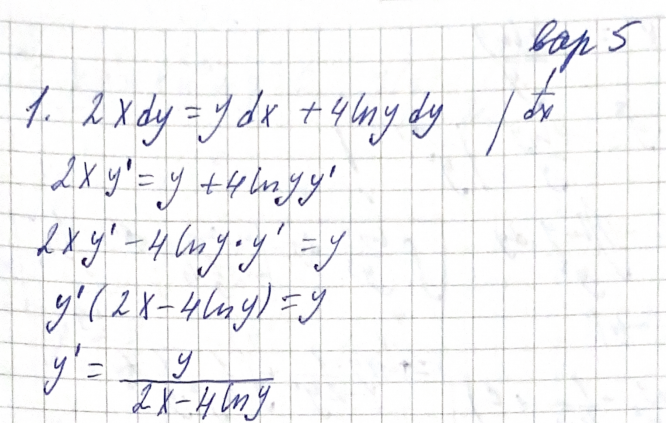 вар 5
1. 2xdy = ydx + 4lny dy | 1/dx
2xy' = y + 4lnyy'
2xy' - 4lny·y' = y
y'(2x - 4lny) = y
y' = y/(2x - 4lny)